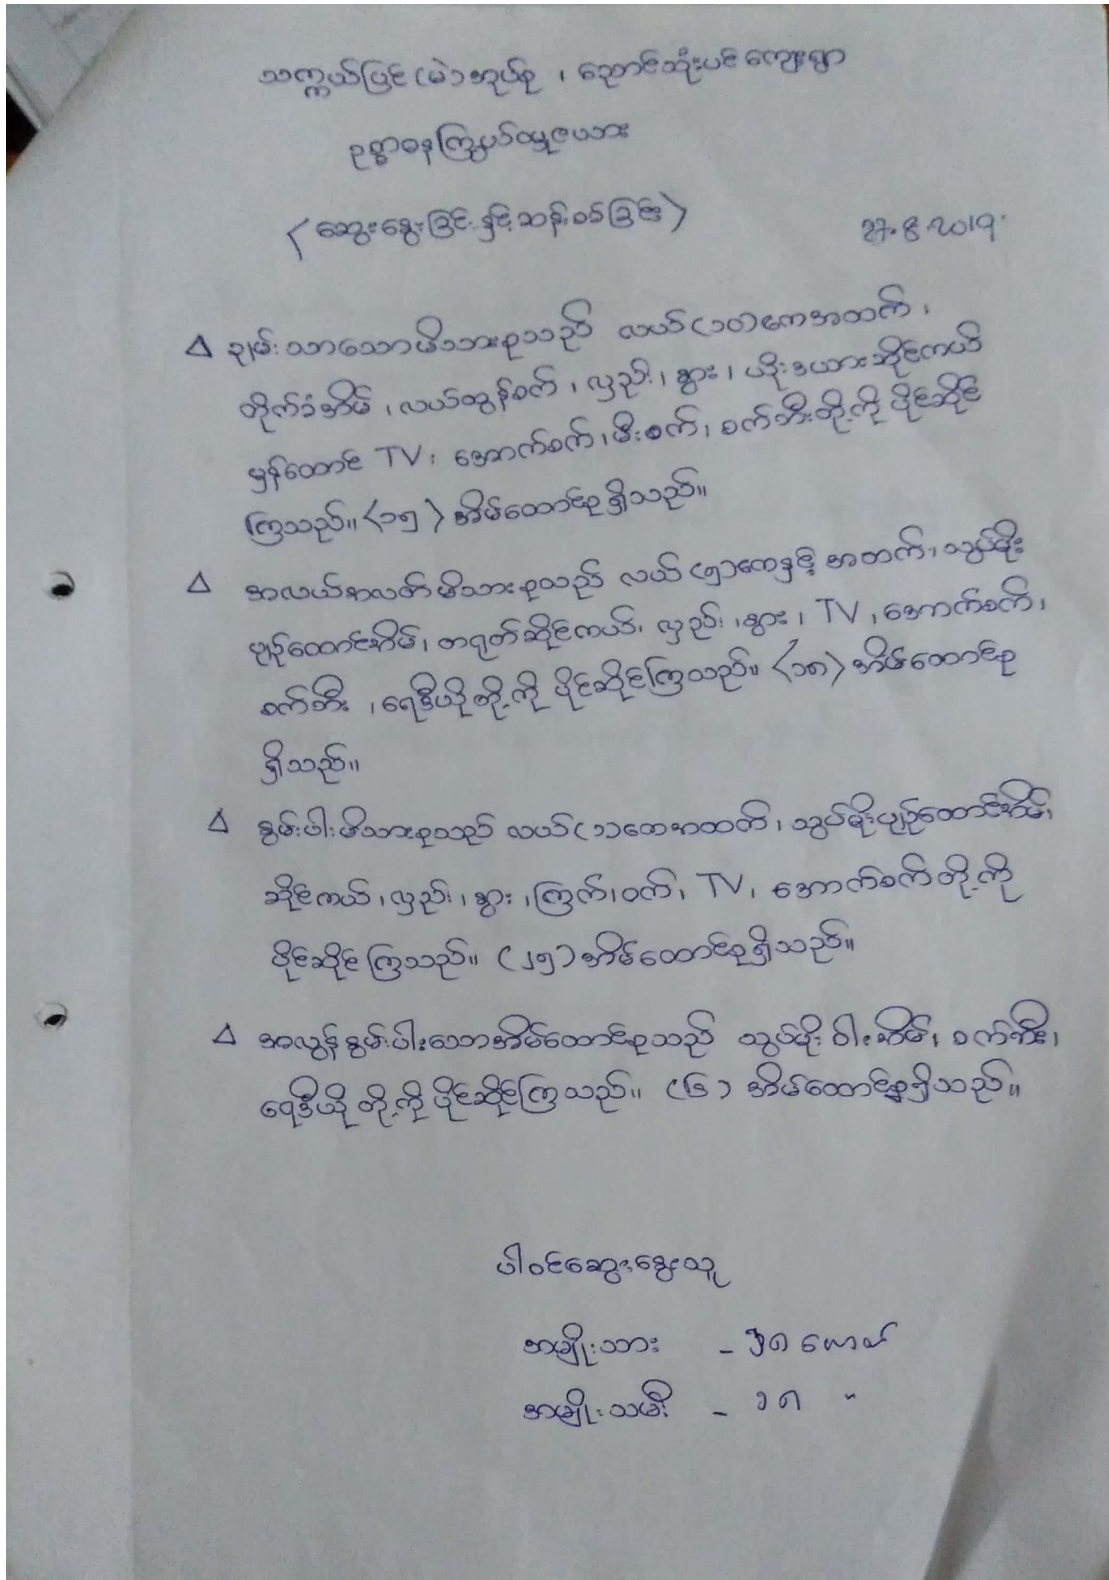 သက္ကယ်ပြင် (မဲ) အုပ်စု ၊ ညောင်သုံးပင် ကျေးရွာ
ဥစ္စာဓနကြွယ်ဝမှုဇယား
(ဆွေးနွေးခြင်းနှင့် ဆန်းစစ်ခြင်း) 27.8.2019
∆ ချမ်းသာသောမိသားစုသည် လယ် (၁၀) ဧကအထက် ၊
တိုက်ခံအိမ် ၊ လယ်ထွန်စက် ၊ လှည်း ၊ နွား ၊ ယိုးဒယားဆိုင်ကယ်
မှန်ထောင် TV ၊ အောက်စက် ၊ မီးစက် ၊ စက်ဘီးတို့ကို ပိုင်ဆိုင်
ကြသည်။ (၁၅) အိမ်ထောင်စု ရှိသည်။
∆ အလယ်အလတ်မိသားစုသည် လယ် (၅) ဧကနှင့် အထက် ၊ သွပ်မိုး
ပျဉ်ထောင်အိမ် ၊ တရုတ်ဆိုင်ကယ် ၊ လှည်း ၊ နွား ၊ TV ၊ အောက်စက် ၊
စက်ဘီး ၊ ရေဒီယို တို့ကို ပိုင်ဆိုင်ကြသည်။ (၁၈) အိမ်ထောင်စု
ရှိသည်။
∆ နွမ်းပါးမိသားစုသည် လယ် (၁) ဧကအထက် ၊ သွပ်မိုးပျဉ်ထောင်အိမ် ၊
ဆိုင်ကယ် ၊ လှည်း ၊ နွား ၊ ကြက် ၊ ဝက် ၊ TV ၊ အောက်စက် တို့ကို
ပိုင်ဆိုင်ကြသည်။ (၂၅) အိမ်ထောင်စုရှိသည်။
∆ အလွန်နွမ်းပါးသောအိမ်ထောင်စုသည် သွပ်မိုး ဝါးအိမ် ၊ စက်ဘီး ၊
ရေဒီယို တို့ကို ပိုင်ဆိုင်ကြသည်။ (၆) အိမ်ထောင်စုရှိသည်။
ပါဝင်ဆွေးနွေးသူ
အမျိုးသား - ယောက်
အမျိုးသမီး - ၁၈ "